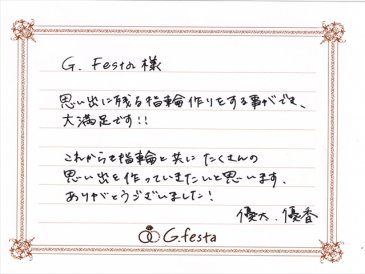 G. Festa 様
思い出に残る指輪作りをする事ができ、
大満足です!!
これからも指輪と共に たくさんの
思い出を作っていきたいと思います。
ありがとうございました!
優太. 優香
G.festa